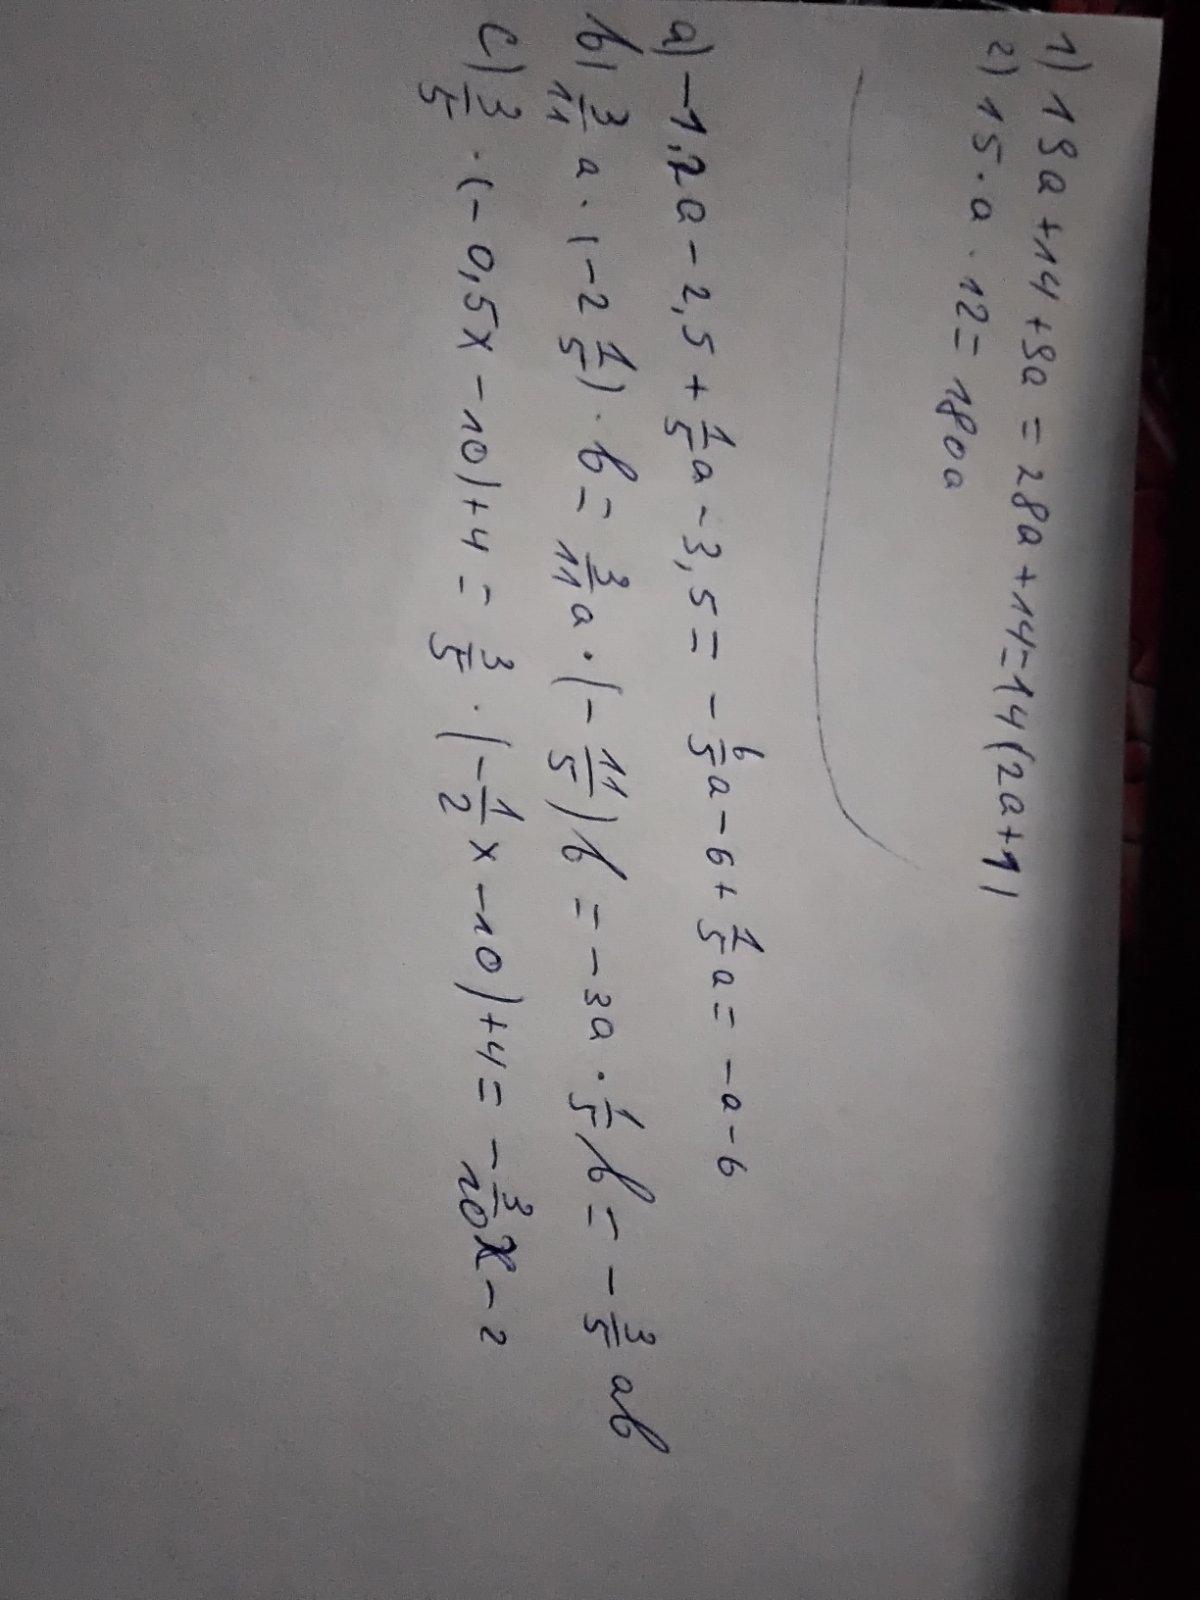 1) 19a+14+9a=28a+14=14(2a+1)
2) 15·a·12=180a
a) -1,2a-2,5+1/5a-3,5=-6/5a-6+1/5a=-a-6
b) 3/11a·(-2 1/5)·b=3/11a·(-11/5)b=-3a·1/5b=-3/5ab
c) 3/5·(-0,5x-10)+4=3/5·(-1/2x-10)+4=-3/10x-2